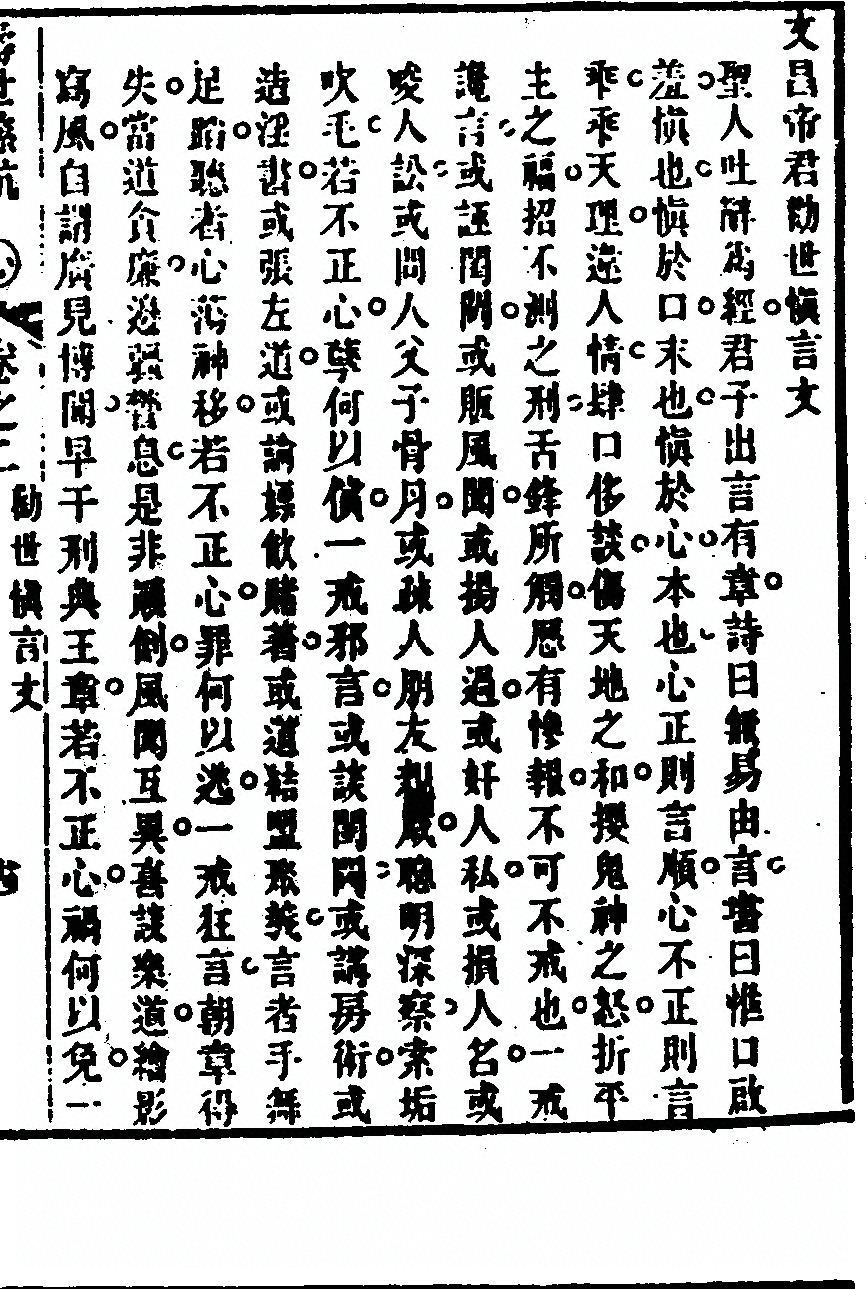 文昌帝君勸世愼言文
聖人吐辭爲經君子出言有章詩曰無易由言書曰惟口啟
羞愼也愼於口末也愼於心本也心正則言順心不正則言
乖乖天理違人情肆口侈談傷天地之和攖鬼神之怒折平
生之福招不測之刑舌鋒所觸慝有慘報不可不戒也一戒
讒言或誣閨閫或販風聞或揚人過或奸人私或損人名或
唆人訟或間人父子骨月或疎人朋友親戚聰明深察索垢
吹毛若不正心孽何以償一戒邪言或談閨閫或講房術或
造淫書或張左道或論嫖飲賭著或道結盟聚義言者手舞
足蹈聽者心蕩神移若不正心罪何以逃一戒狂言朝章得
失當道貪廉邊疆警息是非顚倒風聞互異喜談樂道繪影
寫風自謂廣見博聞早干刑典王章若不正心禍何以免一
卷之二
勸世愼言文